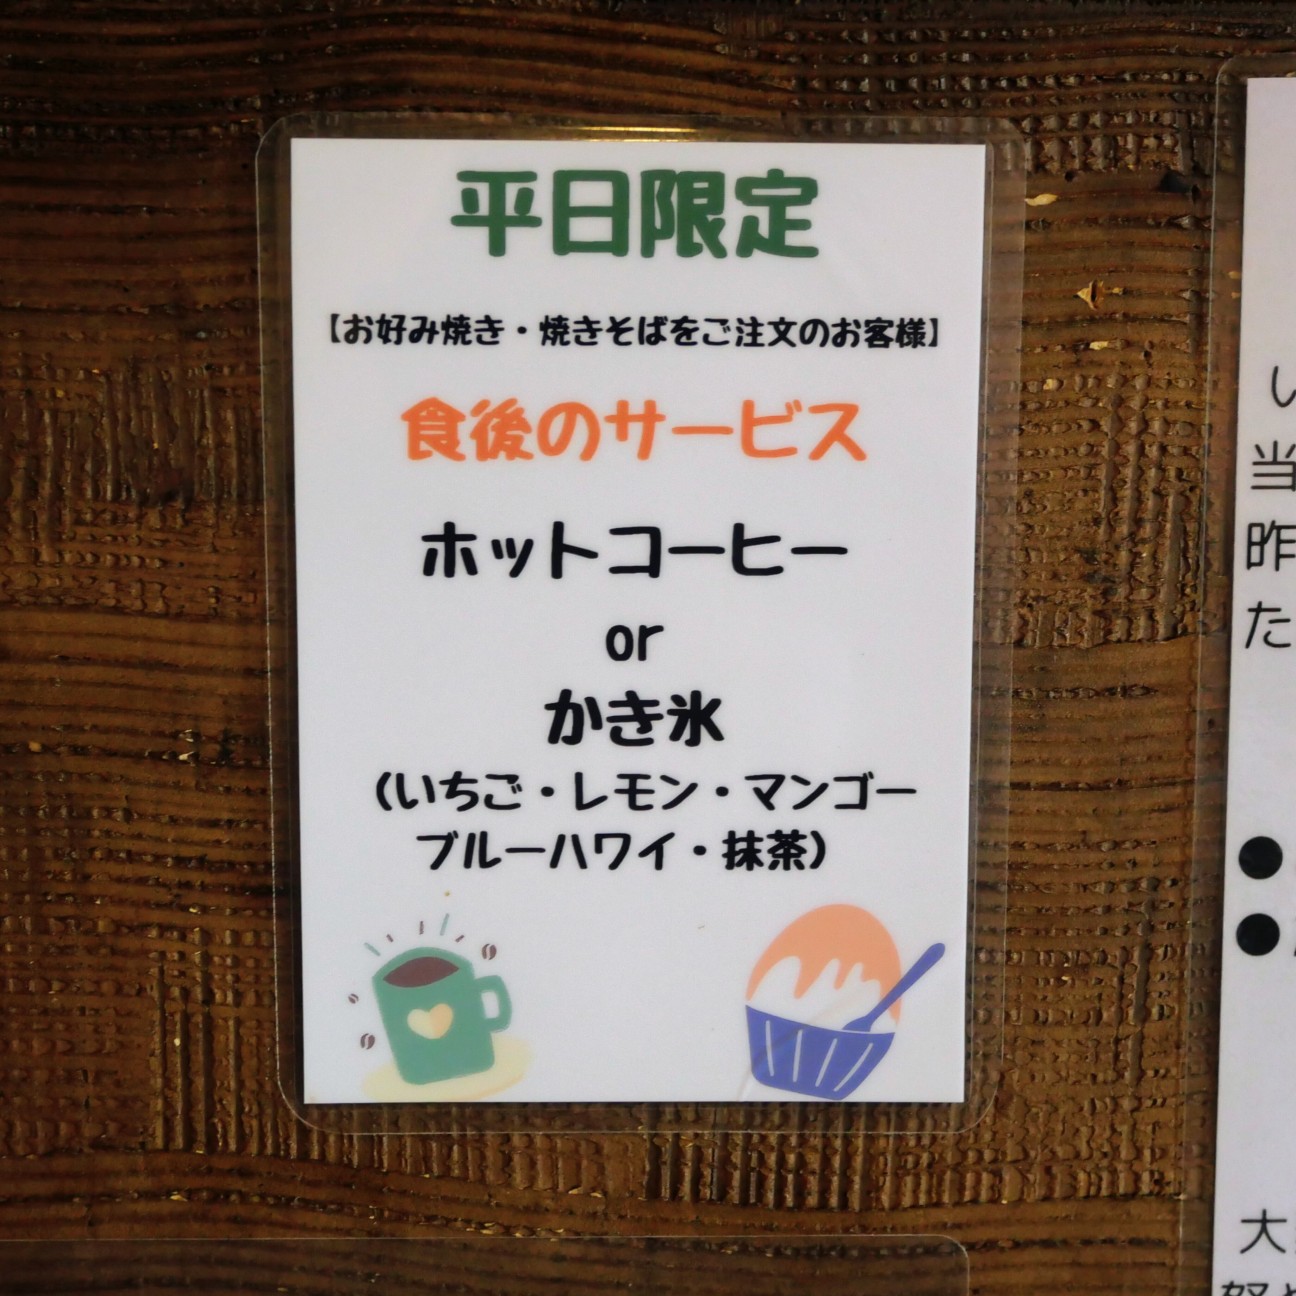 平日限定
【お好み焼き・焼きそばをご注文のお客様】
食後のサービス
ホットコーヒー
or
かき氷
(いちご・レモン・マンゴー
ブルーハワイ・抹茶)
い
当
昨
た
●
●
大